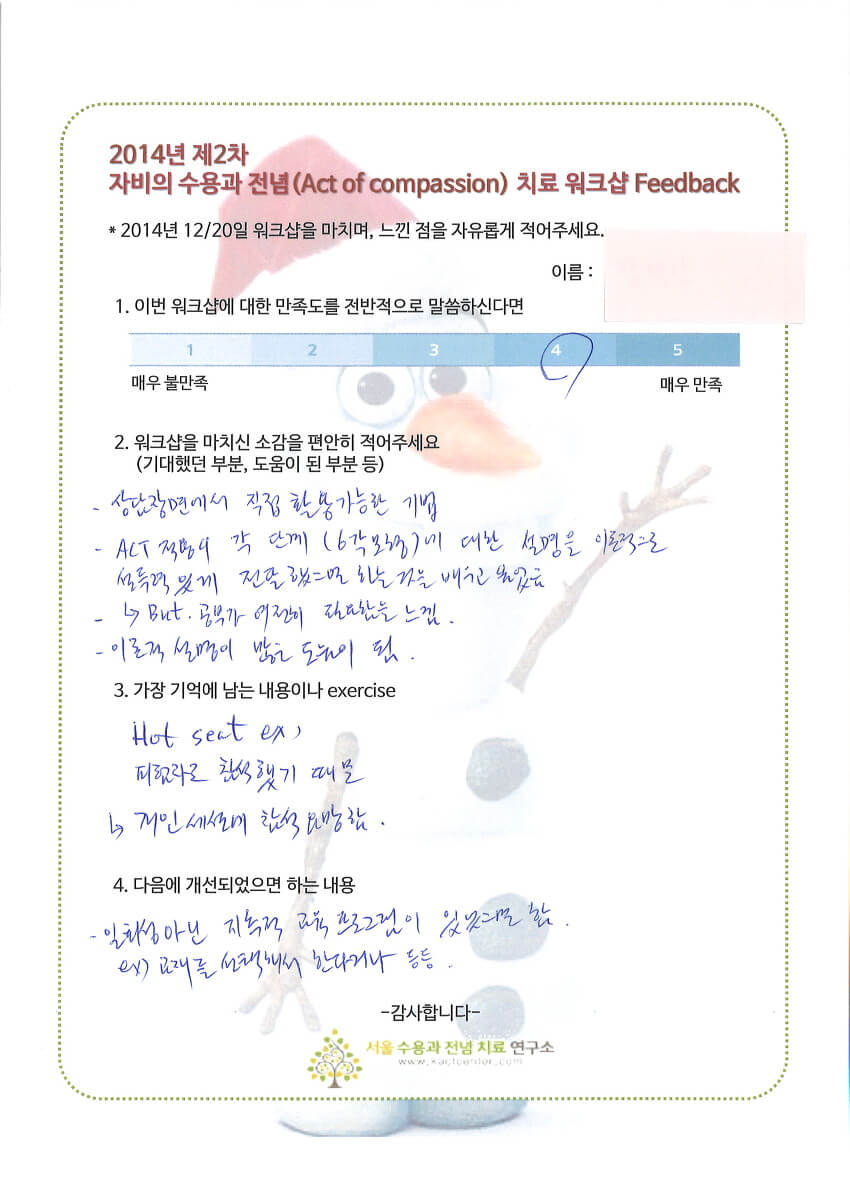 2014년 제2차
자비의 수용과 전념(Act of compassion) 치료 워크샵 Feedback
* 2014년 12/20일 워크샵을 마치며, 느낀 점을 자유롭게 적어주세요.
이름 :
1. 이번 워크샵에 대한 만족도를 전반적으로 말씀하신다면
1 2 3 4 5
매우 불만족 매우 만족
2. 워크샵을 마치신 소감을 편안히 적어주세요
(기대했던 부분, 도움이 된 부분 등)
- 상담장면에서 직접 활용가능한 기법
- ACT 각 단계 (6각모형)에 대한 설명을 이론적으로
설득력 있게 전달했으면 하는 것을 배우고
- ↳ But. 공부가 여전히 필요함을 느낌.
- 이론적 설명이 많은 도움이 됨.
3. 가장 기억에 남는 내용이나 exercise
Hot seat ex)
참석했기 때문
↳ 개인세션에 참석 요망함.
4. 다음에 개선되었으면 하는 내용
- 일회성 아닌 지속적 교육 프로그램이 있었으면 함.
ex) 교재를 선택해서 한다거나 등등.
-감사합니다-
서울 수용과 전념 치료 연구소
www.xactcenter.com